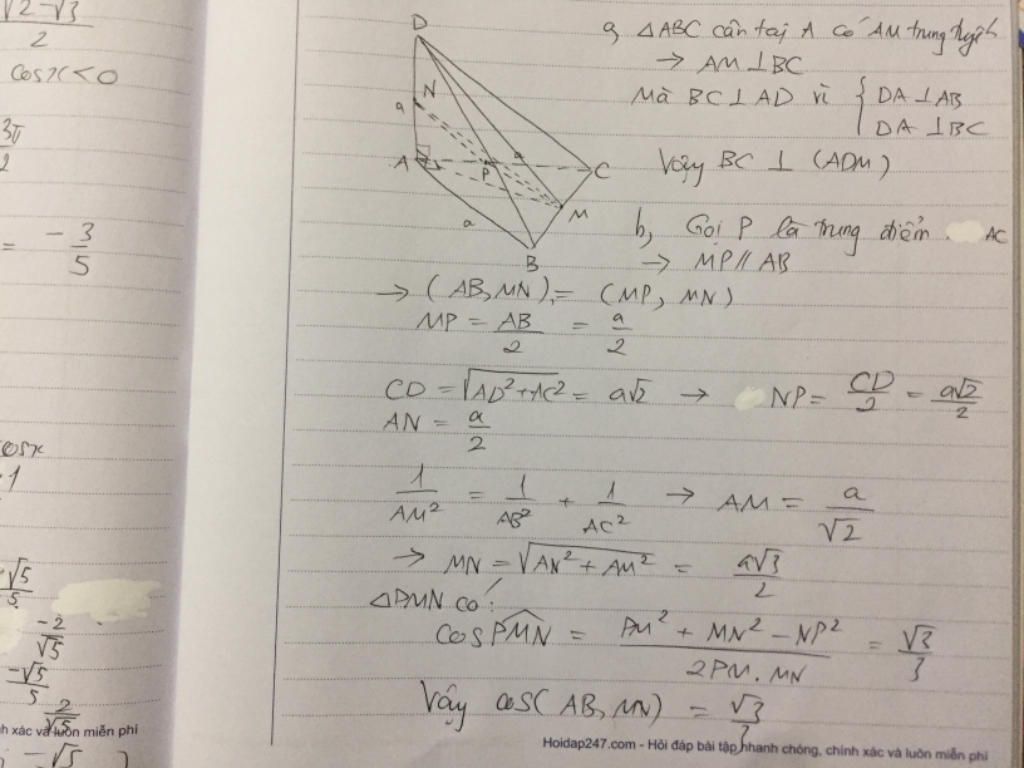 √2 - √3 / 2
cosx < 0
3π / 2
= -3/5
cosx
-√5 / 5
-2 / √5
-√5 / 5
2 / √5
h xác và luôn miễn phí
-√5
D
N
a
A
P
a
C
M
a
B
a, △ABC cân tại A có AM trung tuyến
→ AM ⊥ BC
Mà BC ⊥ AD vì { DA ⊥ AB
DA ⊥ BC
Vậy BC ⊥ (ADM)
b, Gọi P là trung điểm AC
→ MP // AB
→ (AB, MN) = (MP, MN)
MP = AB/2 = a/2
CD = √(AD² + AC²) = a√2 → NP = CD/2 = a√2/2
AN = a/2
1/AM² = 1/AB² + 1/AC² → AM = a/√2
→ MN = √(AN² + AM²) = a√3/2
△PMN có:
cos PMN = (PM² + MN² - NP²) / (2PM.MN) = √3/3
Vậy cos(AB, MN) = √3/3
Hoidap247.com - Hỏi đáp bài tập nhanh chóng, chính xác và luôn miễn phí